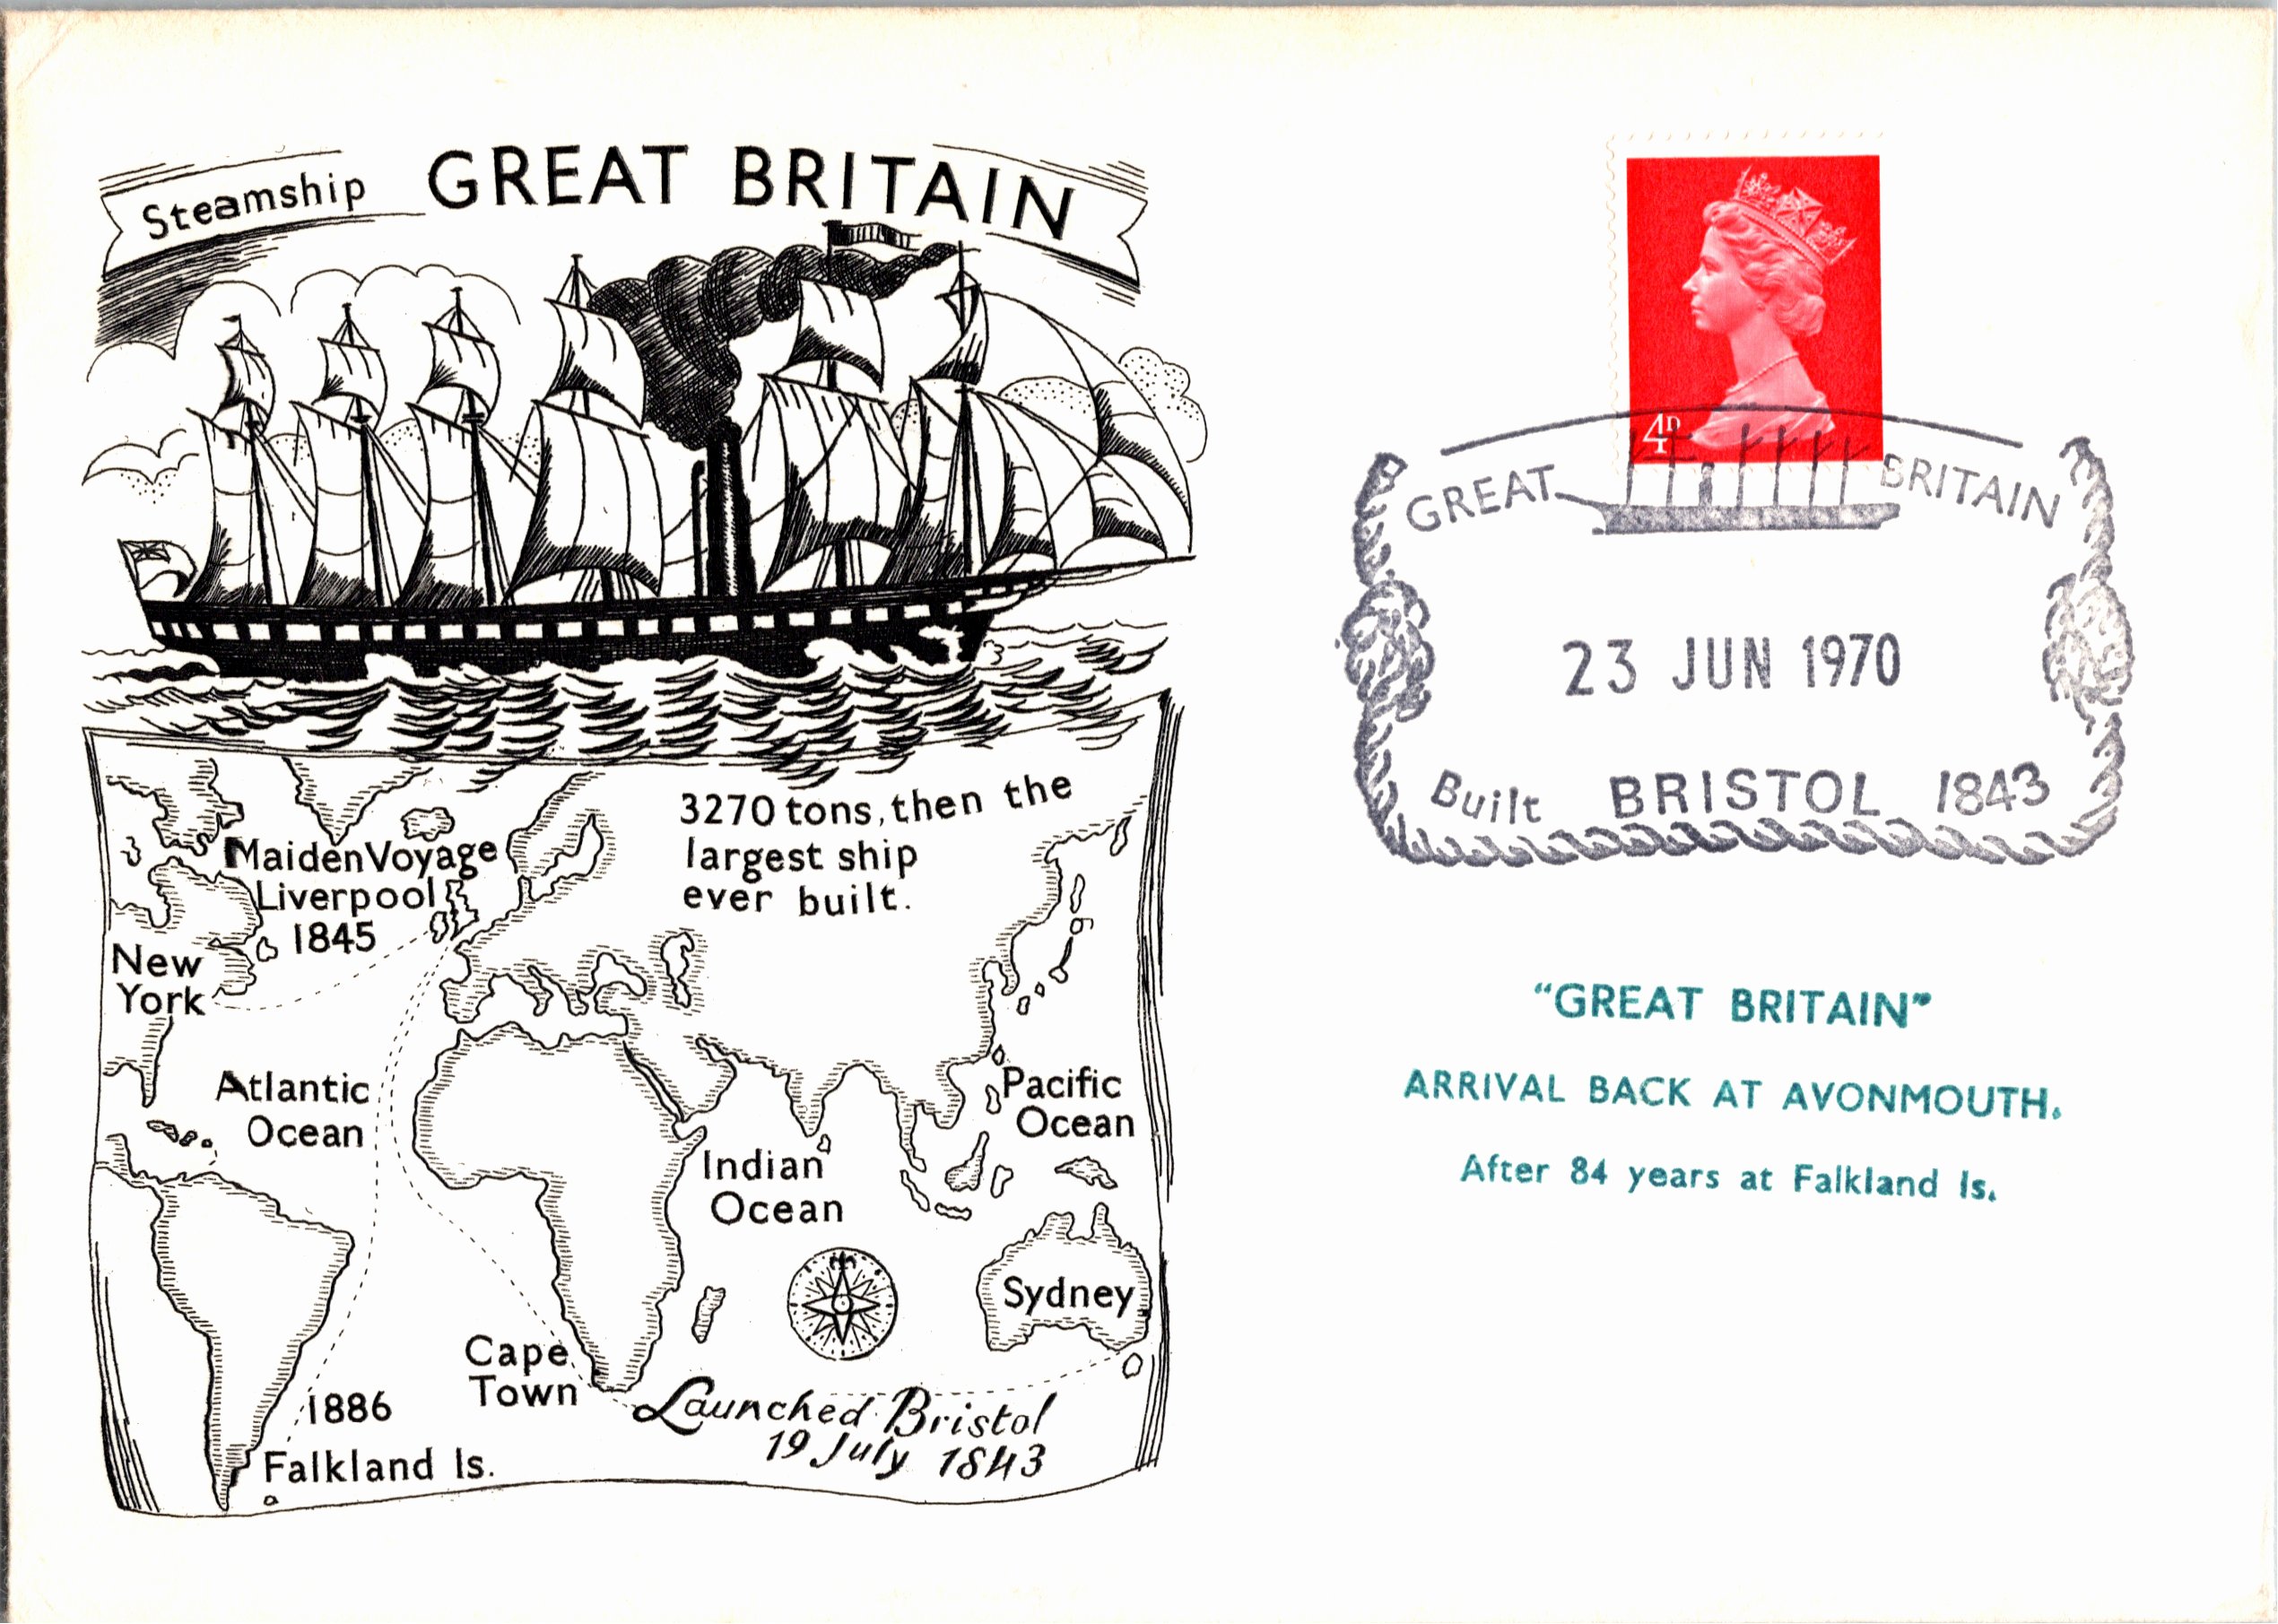 Steamship GREAT BRITAIN
3270 tons, then the
largest ship
ever built.
Maiden Voyage
Liverpool
1845
New
York
Atlantic
Ocean
Pacific
Ocean
Indian
Ocean
Sydney
Cape
Town
1886
Falkland Is.
Launched Bristol
19 July 1843
4D
GREAT BRITAIN
23 JUN 1970
Built BRISTOL 1843
"GREAT BRITAIN"
ARRIVAL BACK AT AVONMOUTH.
After 84 years at Falkland Is.